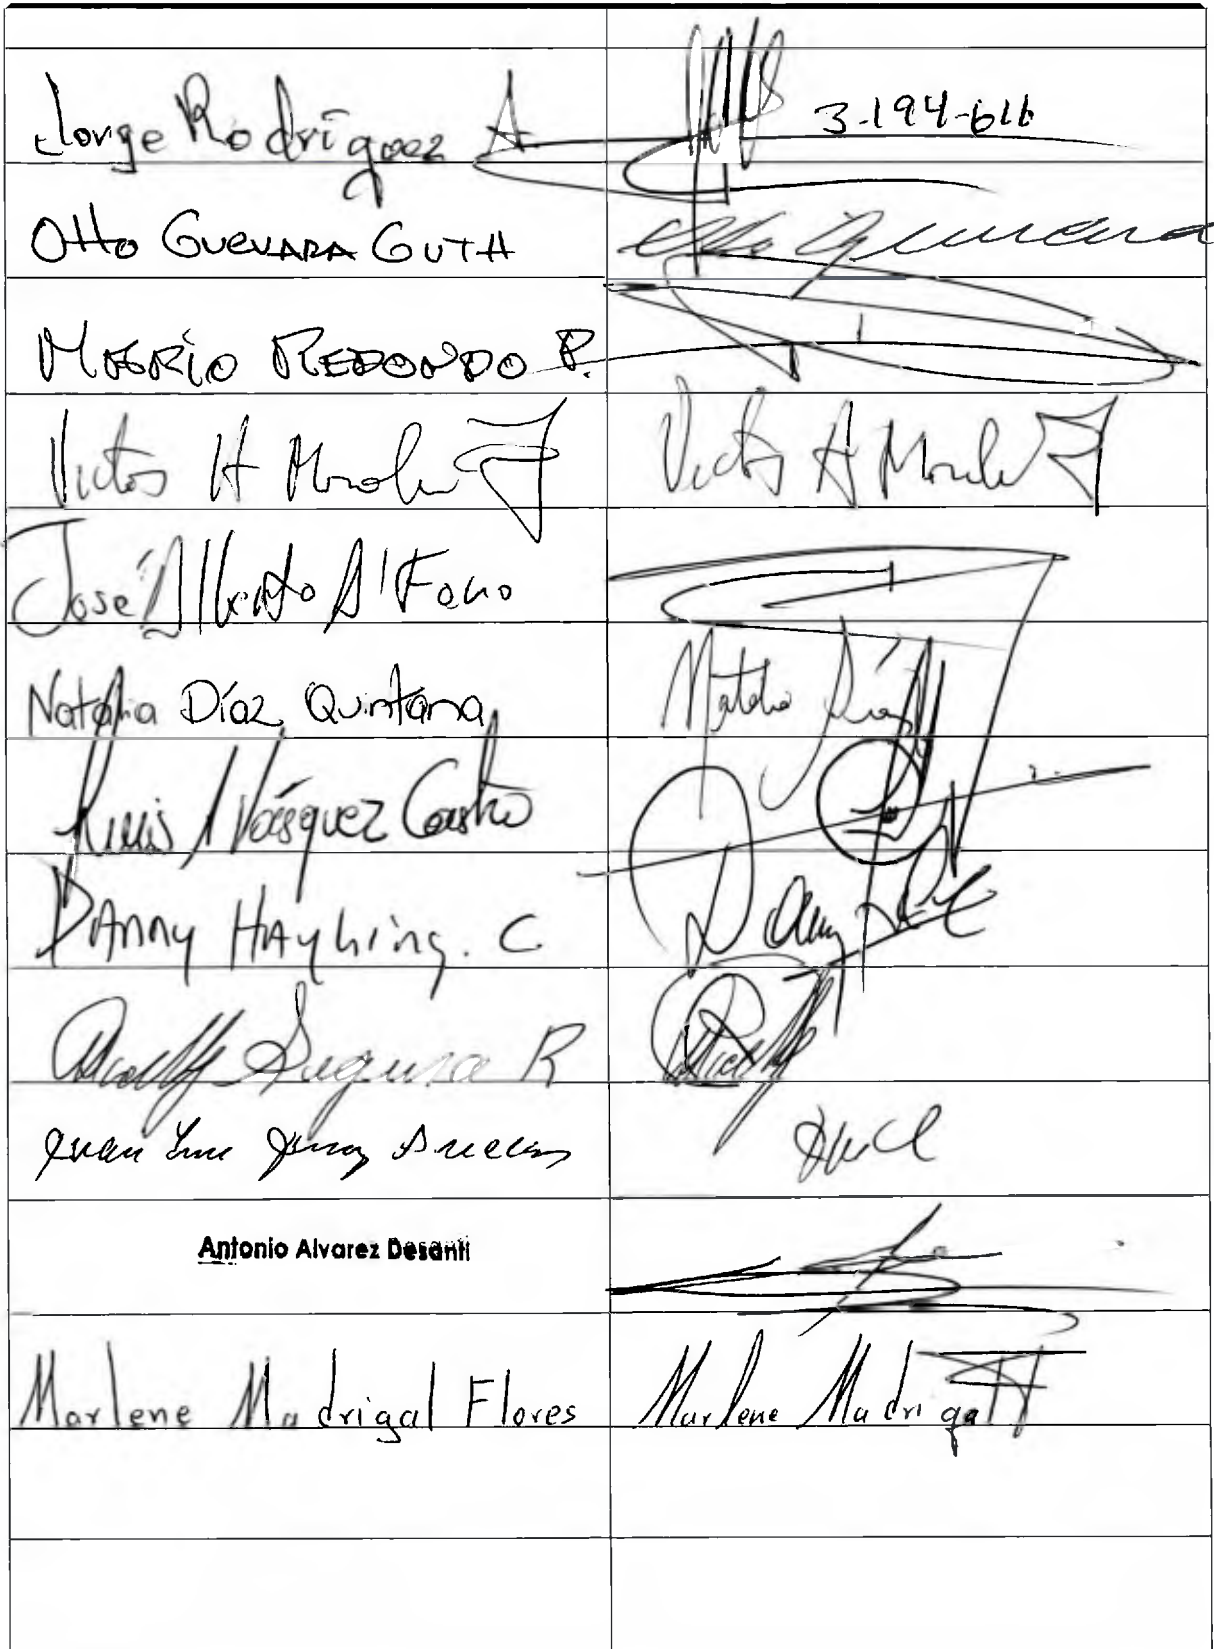 Jorge Rodríguez A
3-194-616
Otto GUEVARA GUTH
Otto Guevara
MARIO REDONDO P.
Victor H Morales Z
Victor H Morales Z
José Alberto Alfaro
Natalia Díaz Quintana
Natalia Díaz
Luis A Vásquez Castro
DANNY HAYLING. C
Danny
Rodolfo Segura R
Juan Luis
Antonio Alvarez Desanti
Marlene Madrigal Flores
Marlene Madrigal